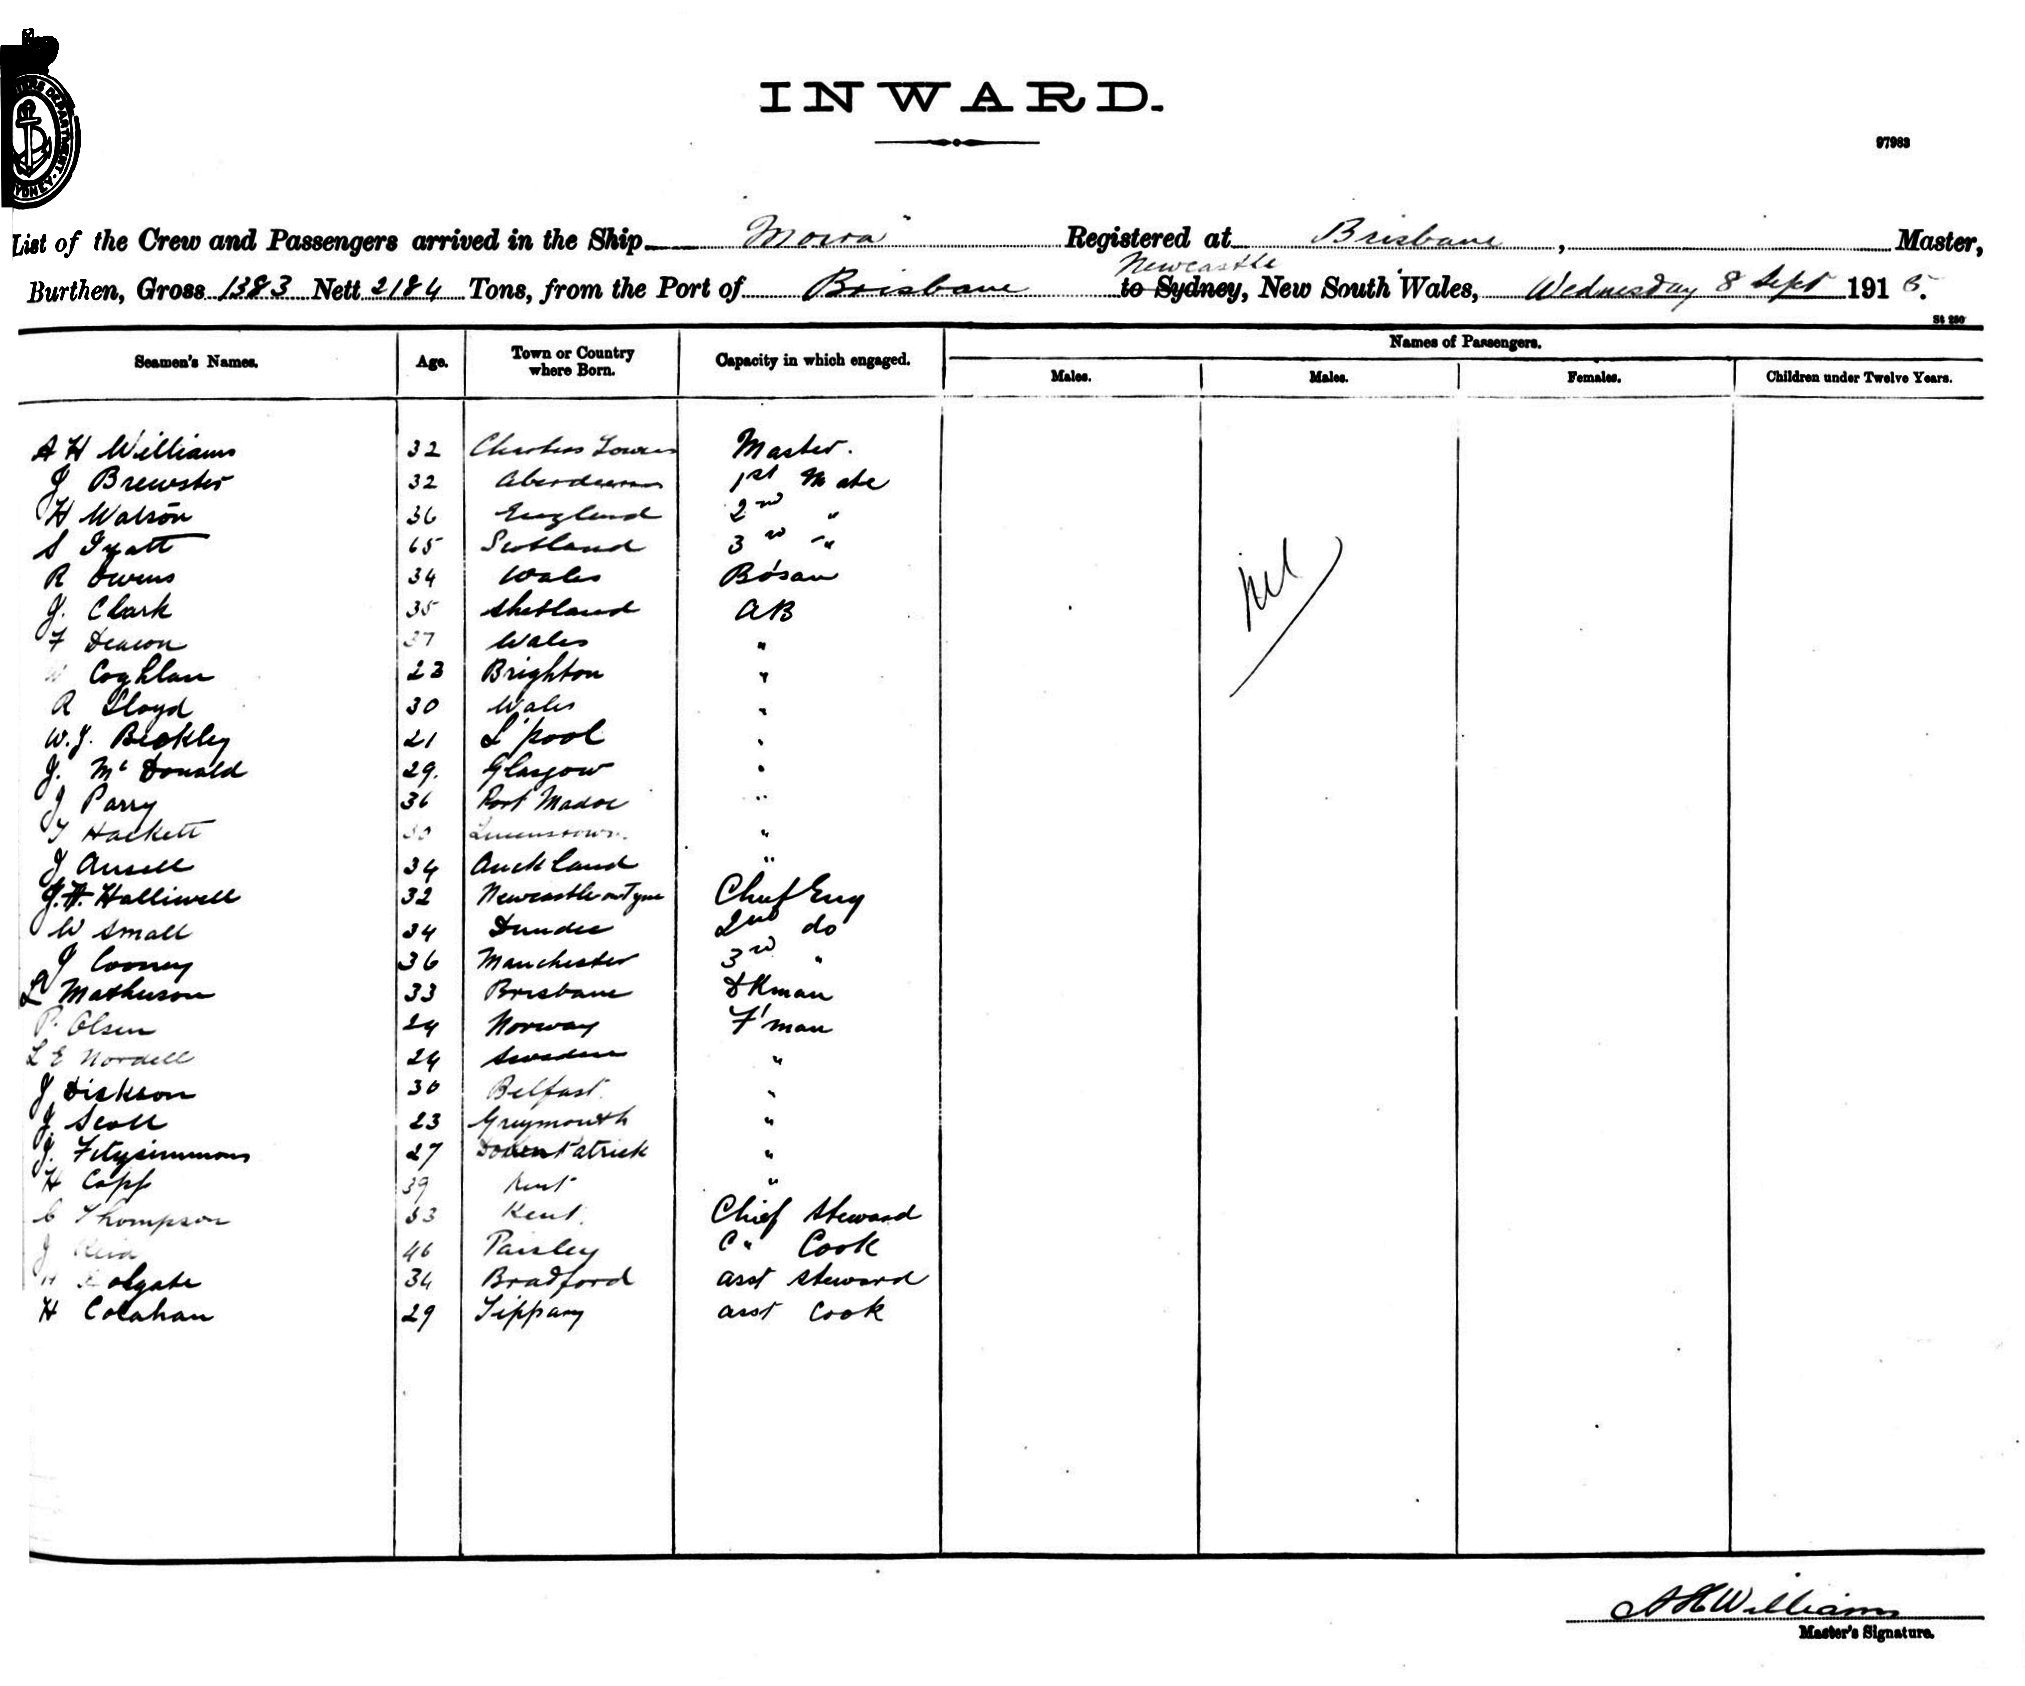 INWARD.
97983
List of the Crew and Passengers arrived in the Ship "Mowra" Registered at Brisbane, Master,
Newcastle
Burthen, Gross 1383 Nett 2184 Tons, from the Port of Brisbane to Sydney, New South Wales, Wednesday 8 Sept 1915.
St 250
Seamen's Names. Age. Town or Country where Born. Capacity in which engaged. Names of Passengers.
Males. Males. Females. Children under Twelve Years.
A H Williams 32 Charters Towers Master.
J Brewster 32 Aberdeen 1st Mate
H Watson 36 England 2nd "
S 65 Scotland 3rd "
R Owens 34 Wales Bo'san
J. Clark 35 Shetland AB
F Deacon 37 Wales "
W Coghlan 23 Brighton "
R Lloyd 30 Wales "
W.J. Beckley 21 L'pool "
J. McDonald 29. Glasgow "
J Parry 36 Port Madoc "
T Hackett 30 Queenstown. "
J Ansell 34 Auckland "
J.H. Halliwell 32 Newcastle on Tyne Chief Eng
W Small 34 Dundee 2nd do
J Cooney 36 Manchester 3rd "
L Matheson 33 Brisbane DKman
P. Olsen 24 Norway F'man
L E Nordell 24 Sweden "
J Dickson 30 Belfast. "
J. Scott 23 Greymouth "
J. Fitzsimmons 27 DownPatrick "
H Capp 39 Kent "
C Thompson 33 Kent. Chief Steward
J Reid 46 Paisley C" Cook
H Holgate 34 Bradford asst steward
H Colahan 29 Tippary asst Cook
Nil
A H Williams
Master's Signature.